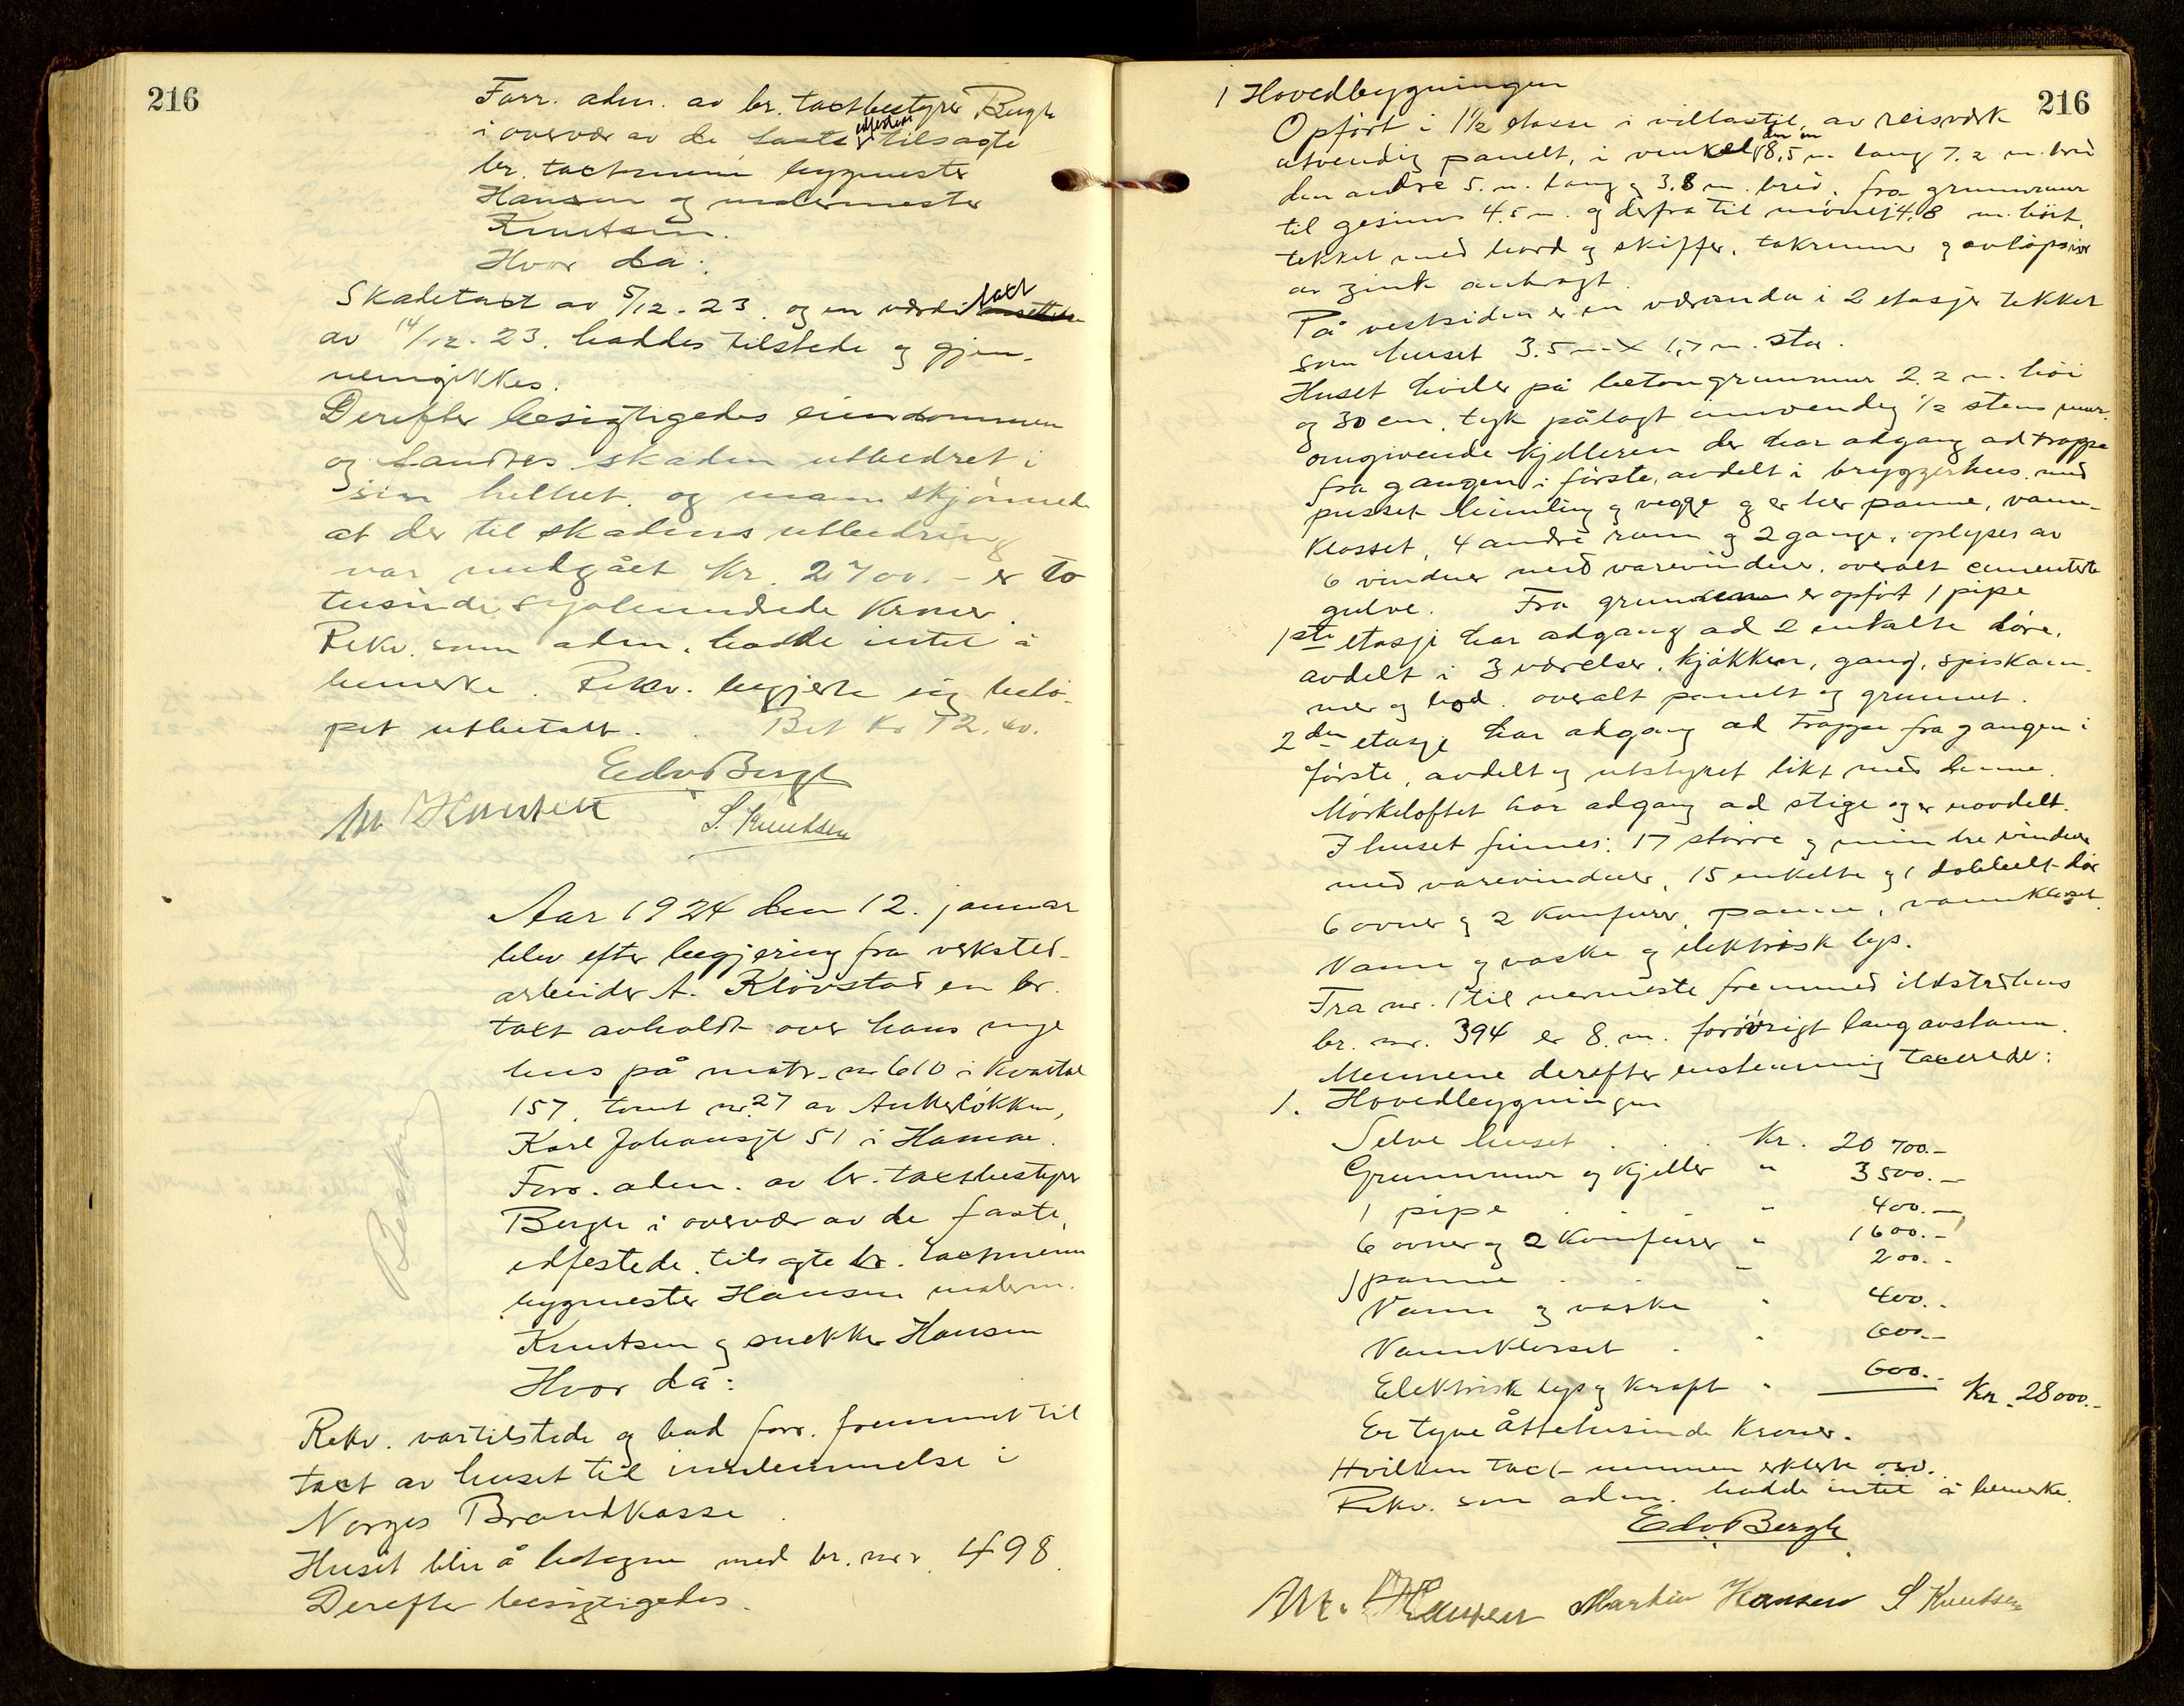 216
Forr. adm. av br. taxtbestyrer Bergh
i overvær av de faste edfestede tilsagte
br. taxtmenn bygmester
Hansen og malermester
Knutsen.
Hvor da:
Skadetaxt av 5/12-23. og en værdi taxt
av 14/12-23. haddes tilstede og gjen-
nemgikkes.
Derefter besigtigedes eiendommen
og fandtes skaden utbedret i
sin helhet og mann skjønnede
at der til skadens utbedring
var medgået Kr. 2700.- er to
tusinde syvhundrede Kroner.
Rekv. som adm. hadde intet å
bemerke. Rekv. begjerte sig belø-
pet utbetalt. Bet Kr 12.40.
Edv Bergh
M Hansen S. Knudsen
Aar 1924 den 12. januar
blev efter begjering fra verksted-
arbeider A. Kløvstad en br.
taxt avholdt over hans nye
hus på matr. nr 610 i Kvartal
157, tomt nr. 27 av Ankerløkken,
Karl Johansgt 51 i Hamar.
Forr. adm. av br. taxtbestyrer
Bergh i overvær av de faste,
edfestede tilsagte br. taxtmenn
bygmester Hansen malerm.
Knutsen og snekker Hansen
Hvor da:
Rekv. var tilstede og bad forr. fremmet til
taxt av huset til innlemmelse i
Norges Brandkasse
Huset blir å betegne med br. nr. 498.
Derefter besigtigedes.
Besked
216
1 Hovedbygningen
Opført i 1½ etasse i villastil, av reisverk
utvendig panelt, i vinkel, den en 8,5 m. lang 7.2 m. bred
den andre 5. m. lang og 3.8 m. bred. fra grunnmur
til gesims 4.5 m. og derfra til mønet 4.8 m. høit,
tekket med bord og skiffer, takrenner og avløpsrør
av zink anbragt.
På vestsiden er en veranda i 2 etasjer tekket
som huset 3.5 m X 1,7 m. stor.
Huset hviler på betongrunnmur 2.2 m. høi
og 30 cm. tyk pålagt innvendig ½ stens mur.
omgivende kjelleren der har adgang ad trappe
fra gangen i første, avdelt i bryggerhus med
pusset himling og vegge og er her panne, vann-
klosset, 4 andre rum og 2 gange, oplyses av
6 vinduer med varevinduer, overalt cementerte
gulve. Fra grunnen er opført 1 pipe
1ste etasje har adgang ad 2 enkelte døre,
avdelt i 3 værelser, kjøkken, gang, spiskam-
mer og bod. overalt panelt og grunnet.
2den etasje har adgang ad trappe fra gangen i
første, avdelt og utstyret likt med denne.
Mørkeloftet har adgang ad stige og er uavdelt.
I huset finnes: 17 større og mindre vinduer
med varevinduer, 15 enkelte og 1 dobbelt dør
6 ovner og 2 komfurer, panne, vannklosset
Vann og vaske og elektrisk lys.
Fra nr. 1 til nermeste fremmed ildstedhus
br. nr. 394 er 8. m. forøvrigt lang avstann.
Mennene derefter enstemmig taxerede:
1. Hovedbygningen
Selve huset . . . Kr. 20 700.-
Grunnmur og kjeller " 3500.-
1 pipe . . " 400.-
6 ovner og 2 komfurer " 1600.-
1 panne . . " 200.-
Vann og vaske " 400.-
Vannklosset . " 600.-
Elektrisk lys og kraft " 600.- Kr. 28000.-
Er tyve åttetusinde Kroner.
Hvilken taxt mennene erklerte osv.
Rekv. som adm. hadde intet å bemerke.
Edv Bergh
M. Hansen Martin Hansen S Knudsen